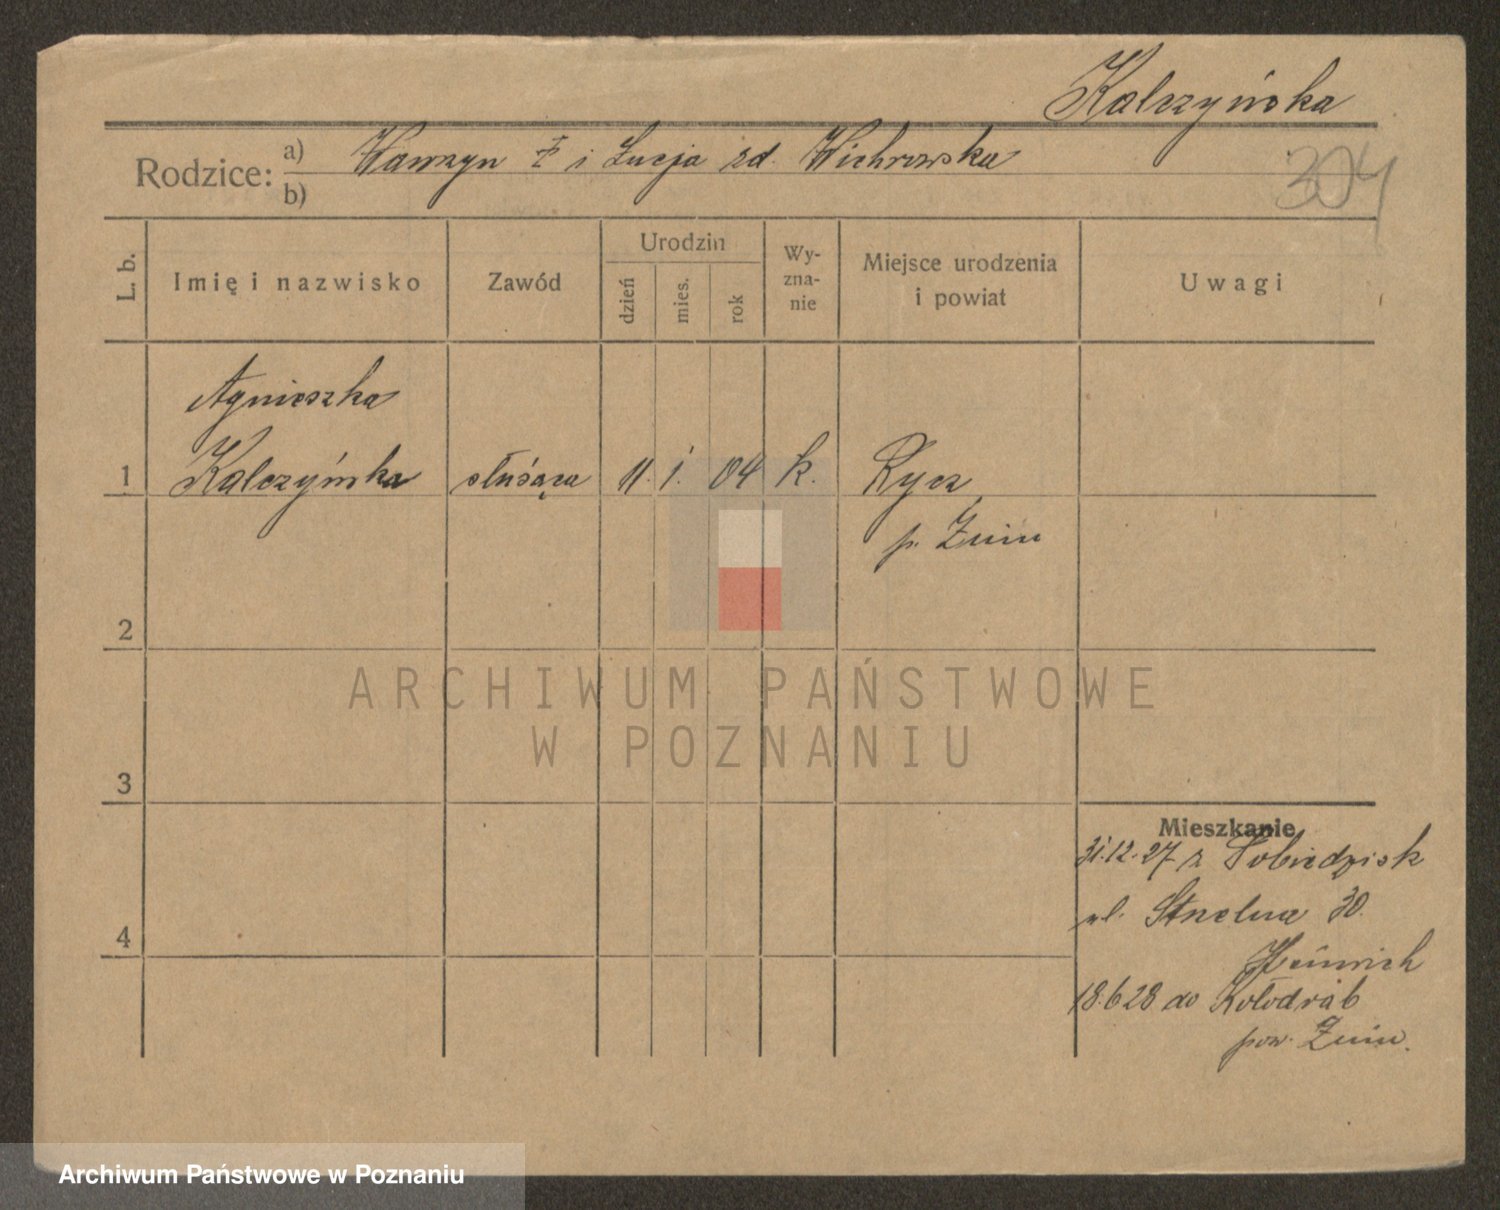 Kalczyńska
Rodzice: a) Wawrzyn i Łucja zd. Wichrowska
b)
304
L. b. Imię i nazwisko Zawód Urodzin dzień mies. rok Wy-zna-nie Miejsce urodzenia i powiat Uwagi
Agnieszka
1 Kalczyńska służąca 11. 1. 04 k. Rycz
p. Żnin
2
ARCHIWUM PAŃSTWOWE
W POZNANIU
3
Mieszkanie
31.12.27 z Sobiedzisk
ul. Strzelna 30.
4
Heinrich
18.6 28 do Kołodrąb
pow. Żnin.
Archiwum Państwowe w Poznaniu